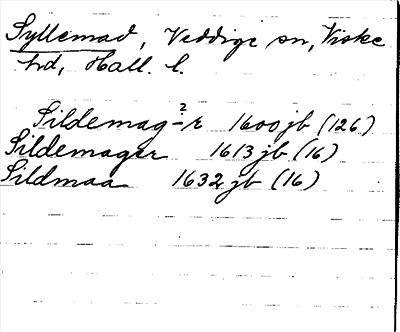 Syllemad, Veddige sn, Viske
hd, Hall. l.
Sildemag-²r 1600 jb (126)
Sildemager 1613 jb (16)
Sildmaa 1632 jb (16)